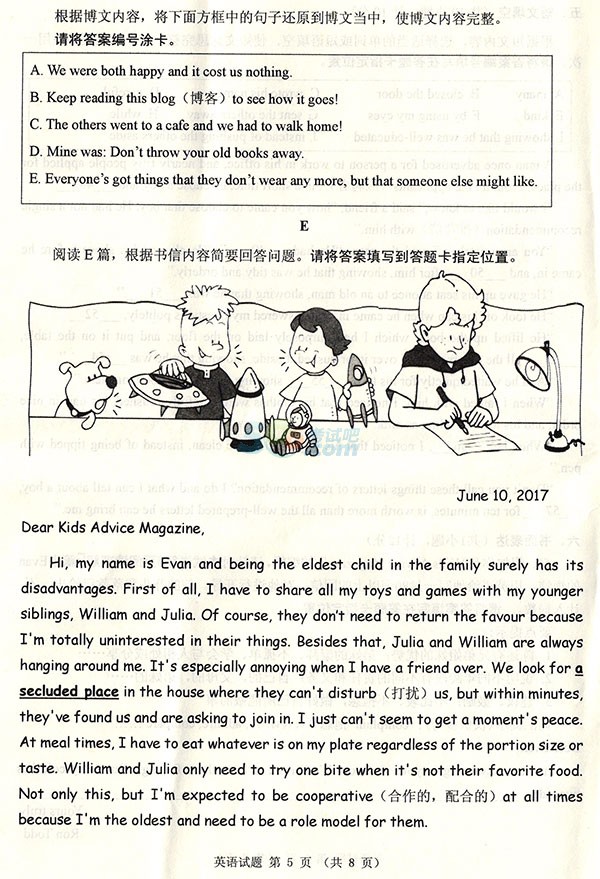 根据博文内容，将下面方框中的句子还原到博文当中，使博文内容完整。
请将答案编号涂卡。
A. We were both happy and it cost us nothing.
B. Keep reading this blog（博客）to see how it goes!
C. The others went to a cafe and we had to walk home!
D. Mine was: Don't throw your old books away.
E. Everyone's got things that they don't wear any more, but that someone else might like.
E
阅读 E 篇，根据书信内容简要回答问题。请将答案填写到答题卡指定位置。
考试吧
June 10, 2017
Dear Kids Advice Magazine,
Hi, my name is Evan and being the eldest child in the family surely has its
disadvantages. First of all, I have to share all my toys and games with my younger
siblings, William and Julia. Of course, they don't need to return the favour because
I'm totally uninterested in their things. Besides that, Julia and William are always
hanging around me. It's especially annoying when I have a friend over. We look for a
secluded place in the house where they can't disturb（打扰）us, but within minutes,
they've found us and are asking to join in. I just can't seem to get a moment's peace.
At meal times, I have to eat whatever is on my plate regardless of the portion size or
taste. William and Julia only need to try one bite when it's not their favorite food.
Not only this, but I'm expected to be cooperative（合作的，配合的）at all times
because I'm the oldest and need to be a role model for them.
英语试题 第 5 页 （共 8 页）